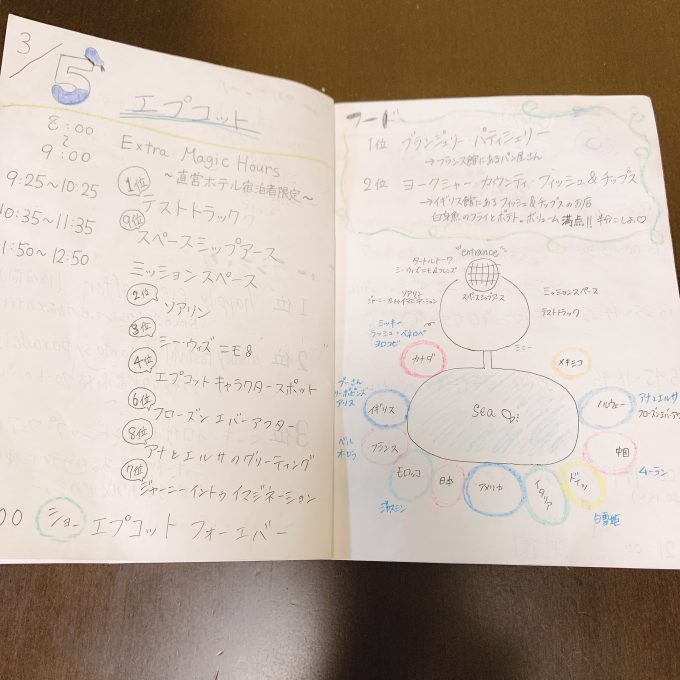 3/5
エプコット
8:00
〜
9:00
Extra Magic Hours
〜直営ホテル宿泊者限定〜
9:25〜10:25
1位
テストトラック
10:35〜11:35
9位
スペースシップアース
1:50〜12:50
ミッションスペース
2位
ソアリン
3位
シー・ウィズ ニモ&
4位
エプコット キャラクタースポット
6位
フローズン エバーアフター
8位
アナとエルサのグリーティング
7位
ジャーニーイントゥイマジネーション
00
ショー
エプコット フォーエバー
フード
1位 ブランジェリー パティシェリー
→フランス館にあるパン屋さん
2位 ヨークシャー カウンティ フィッシュ&チップス
→イギリス館にあるフィッシュ&チップスのお店
白身魚のフライとポテト。ボリューム満点!! 半分こしよ♡
"entrance"
タートルトーク
シーウィズニモ&フレンズ
スペースシップアース
ソアリン
ミッションスペース
テストトラック
ミッキー
ヨロコビ
ミニー
カナダ
メキシコ
プーさん
アリス
イギリス
Sea
ノルウェー
アナとエルサ
フローズンエバーア
ベル
オーロラ
フランス
中国
ムーラン
モロッコ
日本
アメリカ
イタリア
ドイツ
ジャスミン
白雪姫